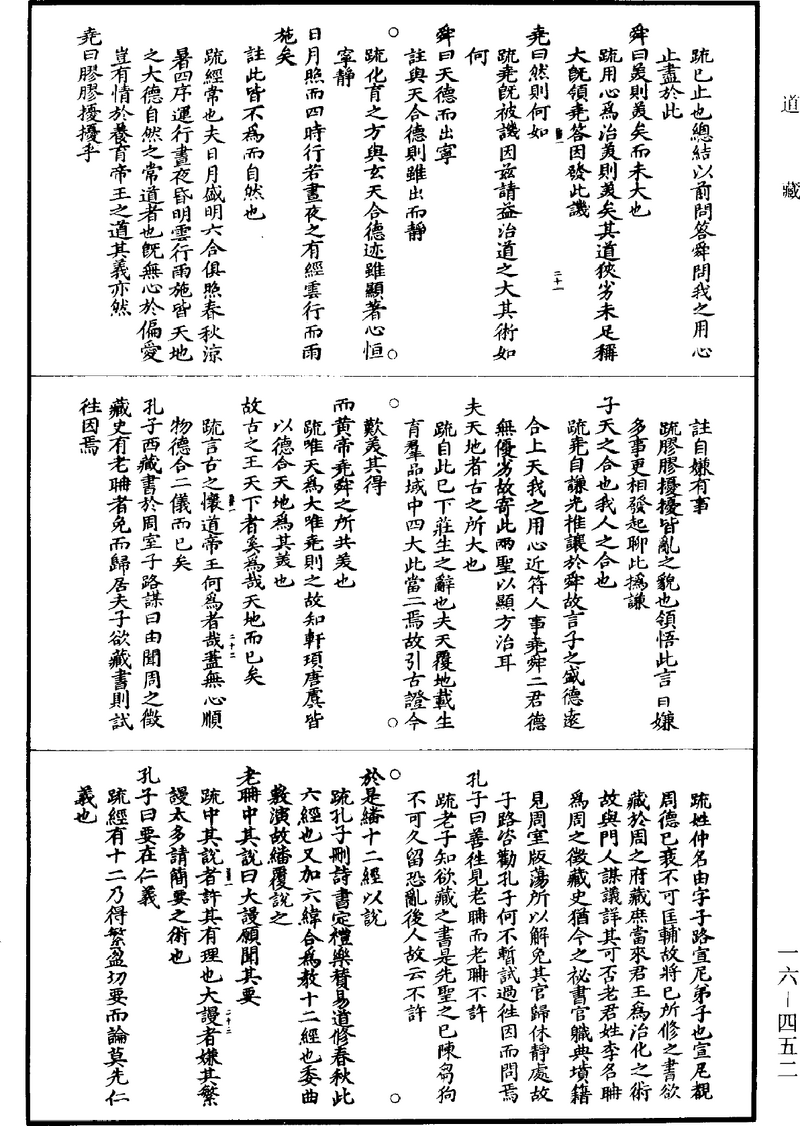 道藏
疏已止也總結以前問答舜問我之用心
止盡於此
舜曰美則美矣而未大也
疏用心為治美則美矣其道狹劣未足稱
大既領堯答因發此譏
堯曰然則何如
二十一
疏堯既被譏因茲請益治道之大其術如
何
舜曰天德而出寧
註與天合德則雖出而靜
疏化育之方與玄天合德迹雖顯著心恒
寧靜
日月照而四時行若晝夜之有經雲行而雨
施矣
註此皆不為而自然也
疏經常也夫日月盛明六合俱照春秋涼
暑四序運行晝夜昏明雲行雨施皆天地
之大德自然之常道者也既無心於偏愛
豈有情於養育帝王之道其義亦然
堯曰膠膠擾擾乎
註自嫌有事
疏膠膠擾擾皆亂之貌也領悟此言曰嫌
多事更相發起聊此撝謙
子天之合也我人之合也
疏堯自謙光推讓於舜故言子之盛德遠
合上天我之用心近符人事堯舜二君德
無優劣故寄此兩聖以顯方治耳
夫天地者古之所大也
疏自此已下莊生之辭也夫天覆地載生
育羣品域中四大此當二焉故引古證今
歎美其得
而黃帝堯舜之所共美也
疏唯天為大唯堯則之故知軒頊唐虞皆
以德合天地為其美也
故古之王天下者奚為哉天地而已矣
二十二
疏言古之懷道帝王何為者哉蓋無心順
物德合二儀而已矣
孔子西藏書於周室子路謀曰由聞周之徵
藏史有老聃者免而歸居夫子欲藏書則試
往因焉
疏姓仲名由字子路宣尼弟子也宣尼覩
周德已衰不可匡輔故將已所修之書欲
藏於周之府藏庶當來君王為治化之術
故與門人謀議詳其可否老君姓李名聃
為周之徵藏史猶今之祕書官職典墳籍
見周室版蕩所以解免其官歸休靜處故
子路咨勸孔子何不暫試過往因而問焉
孔子曰善往見老聃而老聃不許
疏老子知欲藏之書是先聖之已陳芻狗
不可久留恐亂後人故云不許
於是繙十二經以說
疏孔子刪詩書定禮樂贊易道修春秋此
六經也又加六緯合為教十二經也委曲
敷演故繙覆說之
老聃中其說曰大謾願聞其要
二十三
疏中其說者許其有理也大謾者嫌其繁
謾太多請簡要之術也
孔子曰要在仁義
疏經有十二乃得繁盈切要而論莫先仁
義也
一六－四五二